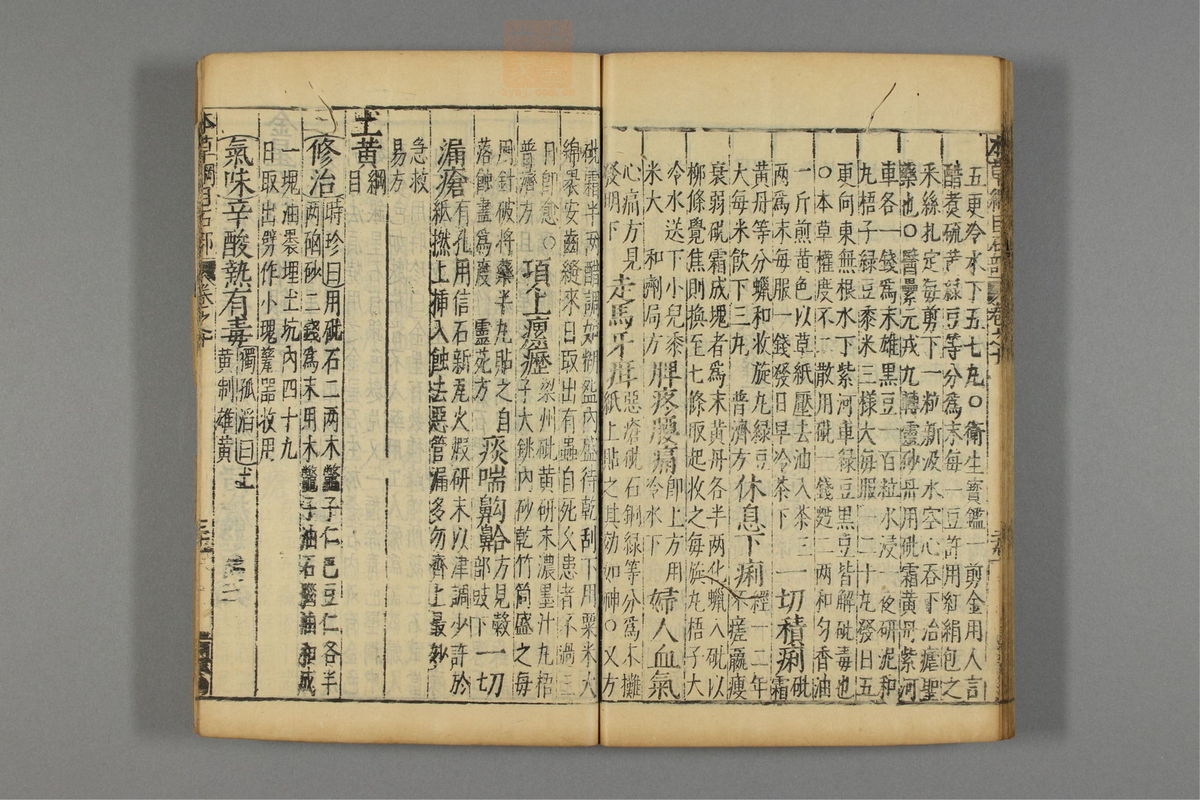 本草綱目石部 卷之十
五更冷水下五七丸○衛生寶鑑一剪金用人言
醋煑硫黄綠豆等分爲末每一豆許用紅絹包之
釆絲扎定每剪下一粒新汲水空心吞下治瘧聖
藥也○醫壘元戎九轉靈砂丹用砒霜黄丹紫河
車各一錢爲末雄黑豆一百粒水浸一夜研泥和
丸梧子綠豆黍米三様大每服一二十丸發日五
更向東無根水下紫河車綠豆黑豆皆解砒毒也
○本草權度不二散用砒一錢麪二兩和勻香油
一斤煎黄色以草紙壓去油入茶三
兩爲末每服一錢發日早冷茶下 一切積痢砒霜
黄丹等分蠟和收旋丸綠豆
大每米飲下三丸 普濟方 休息下痢經一二年不瘥羸瘦
衰弱砒霜成塊者爲末黄丹各半兩化蠟入砒以
柳條攪焦則換至七條取起收之每旋丸梧子大
冷水送下小兒黍
米大 和劑局方 脾疼腰痛卽上方用冷水下 婦人血氣
心痛方見發明下 走馬牙疳惡瘡砒石銅緑等分爲末攤
紙上貼之其効如神○又方
砒霜半兩醋調如糊盌內盛待乾刮下用粟米大
綿褁安齒縫來日取出有蟲自死久患者不過三
日卽愈○普濟方 項上瘰癧梁州砒黄研末濃墨汁丸梧
子大銚內砂乾竹筒盛之每
用針破將藥半丸貼之自
落蝕盡爲度 靈苑方 痰喘齁𩩲方見穀部豉下 一切
漏瘡有孔用信石新瓦火煅研末以津調少許於
紙撚上挿入蝕去惡管漏多勿齊上最妙
急救易方
土黄綱目
修治時珍曰用砒石二兩木鼈子仁巴豆仁各半
兩硇砂二錢爲末用木鼈子油石腦油和成
一塊油褁埋土坑內四十九
日取出劈作小塊甆器收用
氣味辛酸熱有毒獨孤滔曰土黄制雄黄
本草綱目石部 卷之十